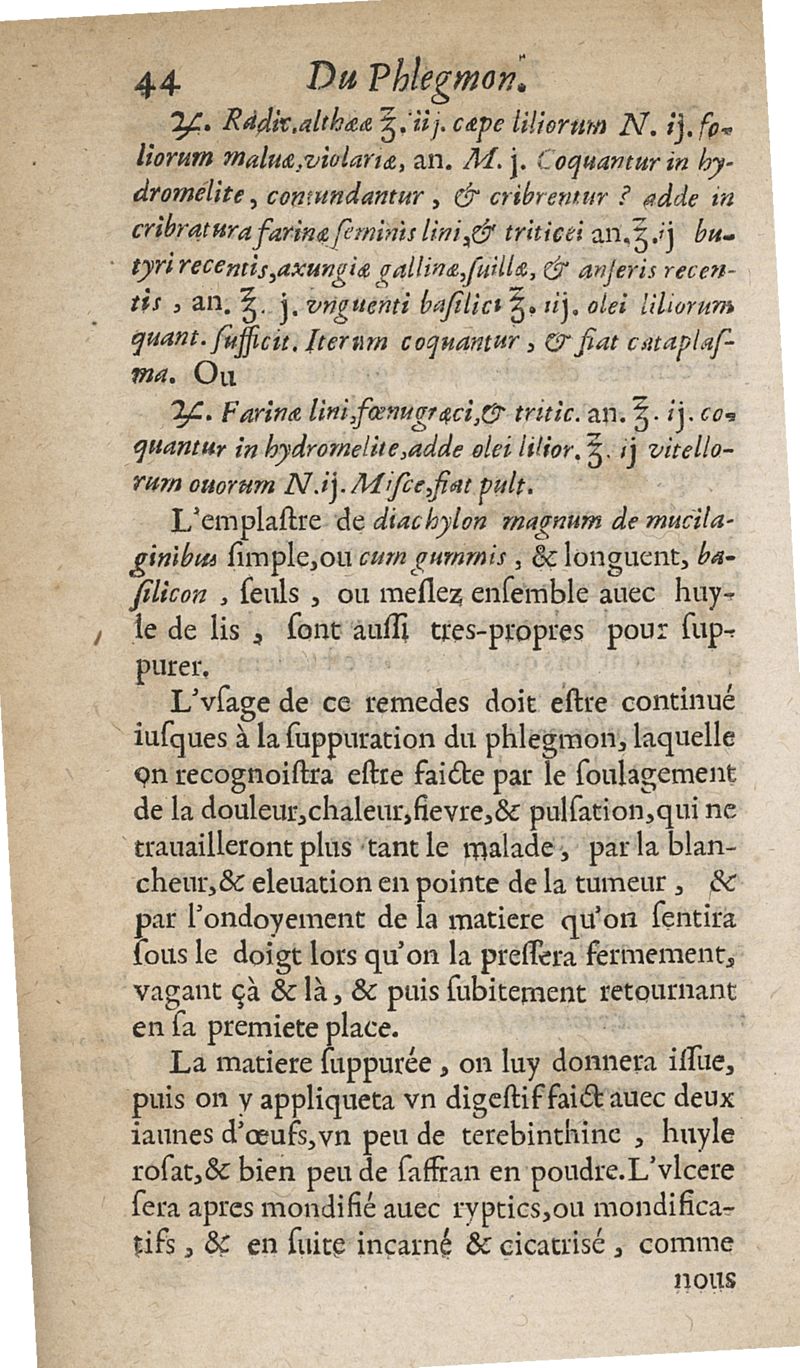 44 Du Phlegmon.
♃. Radic. althææ ℥. iij. cæpe liliorum N. ij. fo-
liorum maluæ, violariæ, an. M. j. Coquantur in hy-
dromelite, contundantur, & cribrentur ? adde in
cribratura farinæ ſeminis lini, & triticei an. ℥. ij bu-
tyri recentis, axungiæ gallinæ, ſuillæ, & anſeris recen-
tis, an. ℥. j. vnguenti baſilici ℥. iij. olei liliorum
quant. ſufficit. Iterum coquantur, & fiat cataplaſ-
ma. Ou
♃. Farinæ lini, fœnugræci, & tritic. an. ℥. ij. co-
quantur in hydromelite, adde olei lilior. ℥. ij vitello-
rum ouorum N. ij. Miſce, fiat pult.
L'emplaſtre de diachylon magnum de mucila-
ginibus ſimple, ou cum gummis, & longuent, ba-
ſilicon, ſeuls, ou meſlez enſemble auec huy-
le de lis, ſont auſſi tres-propres pour ſup-
purer.
L'vſage de ce remedes doit eſtre continué
iuſques à la ſuppuration du phlegmon, laquelle
on recognoiſtra eſtre faicte par le ſoulagement
de la douleur, chaleur, fievre, & pulſation, qui ne
trauailleront plus tant le malade, par la blan-
cheur, & eleuation en pointe de la tumeur, &
par l'ondoyement de la matiere qu'on ſentira
ſous le doigt lors qu'on la preſſera fermement,
vagant çà & là, & puis ſubitement retournant
en ſa premiete place.
La matiere ſuppurée, on luy donnera iſſue,
puis on y appliqueta vn digeſtif faict auec deux
iaunes d'œufs, vn peu de terebinthine, huyle
roſat, & bien peu de ſaffran en poudre. L'vlcere
ſera apres mondifié auec ryptics, ou mondifica-
tifs, & en ſuite incarné & cicatriſé, comme
nous